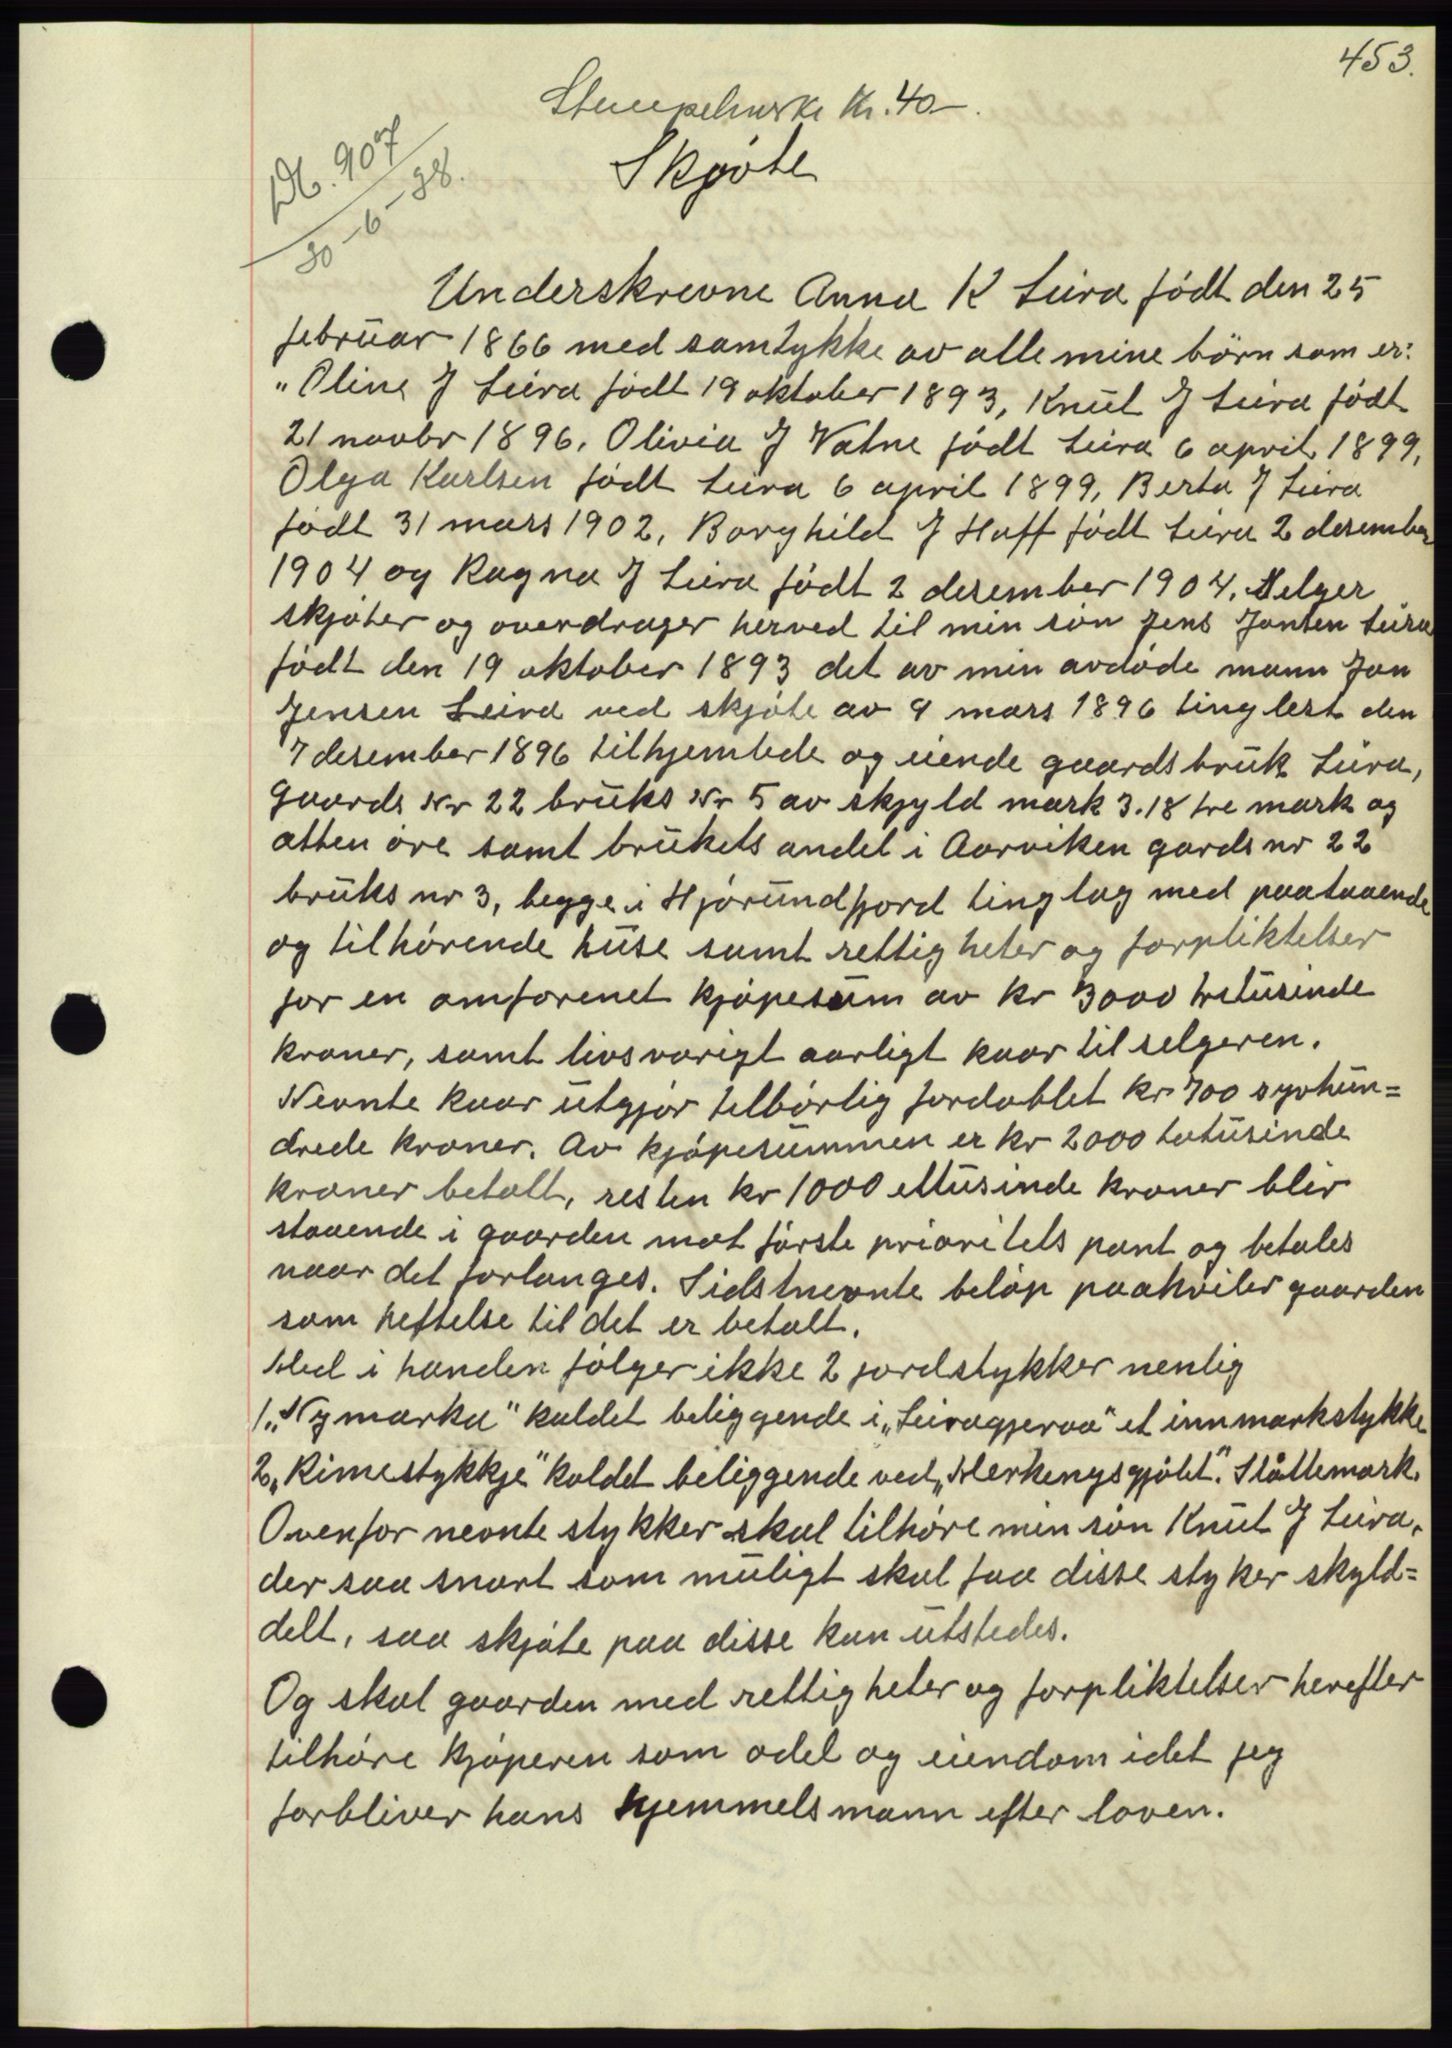 453.
Stempelmerke Kr. 40-.
Skjøte
Nr. 907
30-6-38.
Underskrevne Anna K Leira født den 25
februar 1866 med samtykke av alle mine børn som er:
"Oline J Leira født 19 oktober 1893, Knut J Leira født
21 novbr 1896, Olivia J Vatne født Leira 6 april 1899,
Olga Karlsen født Leira 6 april 1899, Berta J Leira
født 31 mars 1902, Borghild J Hoff født Leira 2 desember
1904 og Ragna J Leira født 2 desember 1904. Selger
skjøter og overdrager herved til min søn Jens Jonsen Leira
født den 19 oktober 1893 det av min avdøde mann Jon
Jensen Leira ved skjøte av 9 mars 1896 tinglest den
7 desember 1896 tilhjemlede og eiende gaardsbruk Leira,
Gaards Nr 22 bruks Nr 5 av skjyld mark 3.18 tre mark og
atten øre samt brukets andel i Aarviken gards nr 22
bruks nr 3, begge i Hjørundfjord tinglag med paastaaende
og tilhørende huse samt rettigheter og forpliktelser
for en omforenet kjøpesum av kr 3000 tretusinde
kroner, samt livsvarigt aarligt kaar til selgeren.
Nevnte kaar utgjør tilbørlig fordoblet kr 700 syvhun=
drede kroner. Av kjøpesummen er kr 2000 totusinde
kroner betalt, resten kr 1000 ettusinde kroner blir
staaende i gaarden mot første prioritets pant og betales
naar det forlanges. Sidstnevnte beløp paahviler gaarden
som heftelse til det er betalt.
Med i handen følger ikke 2 jordstykker nemlig
1. "Nymarka" kaldet beliggende i "Leiragjeraa" et innmarkstykke
2. "Rimestykkje" kaldet beliggende ved "Merkenysgjølet". Slåttemark.
Ovenfor nevnte stykker skal tilhøre min søn Knut J Leira,
der saa snart som muligt skal faa disse styker skyld=
delt, saa skjøte paa disse kan utstedes.
Og skal gaarden med rettigheter og forpliktelser herefter
tilhøre kjøperen som odel og eiendom idet jeg
forbliver hans hjemmelsmann efter loven.